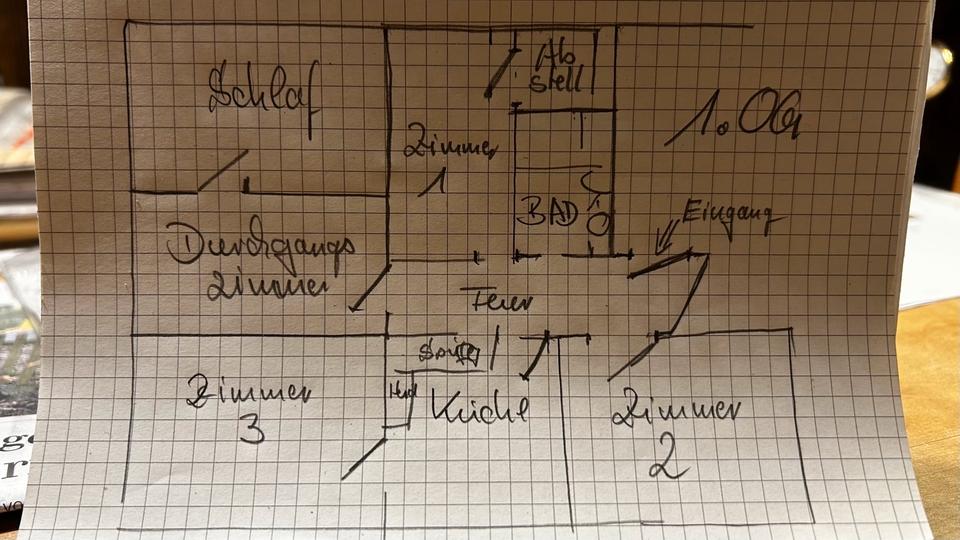 Schlaf
Ab
stell
1. OG
Zimmer
1
BAD
Eingang
Durchgangs
zimmer
Feier
Herd
Küche
Zimmer
3
Zimmer
2